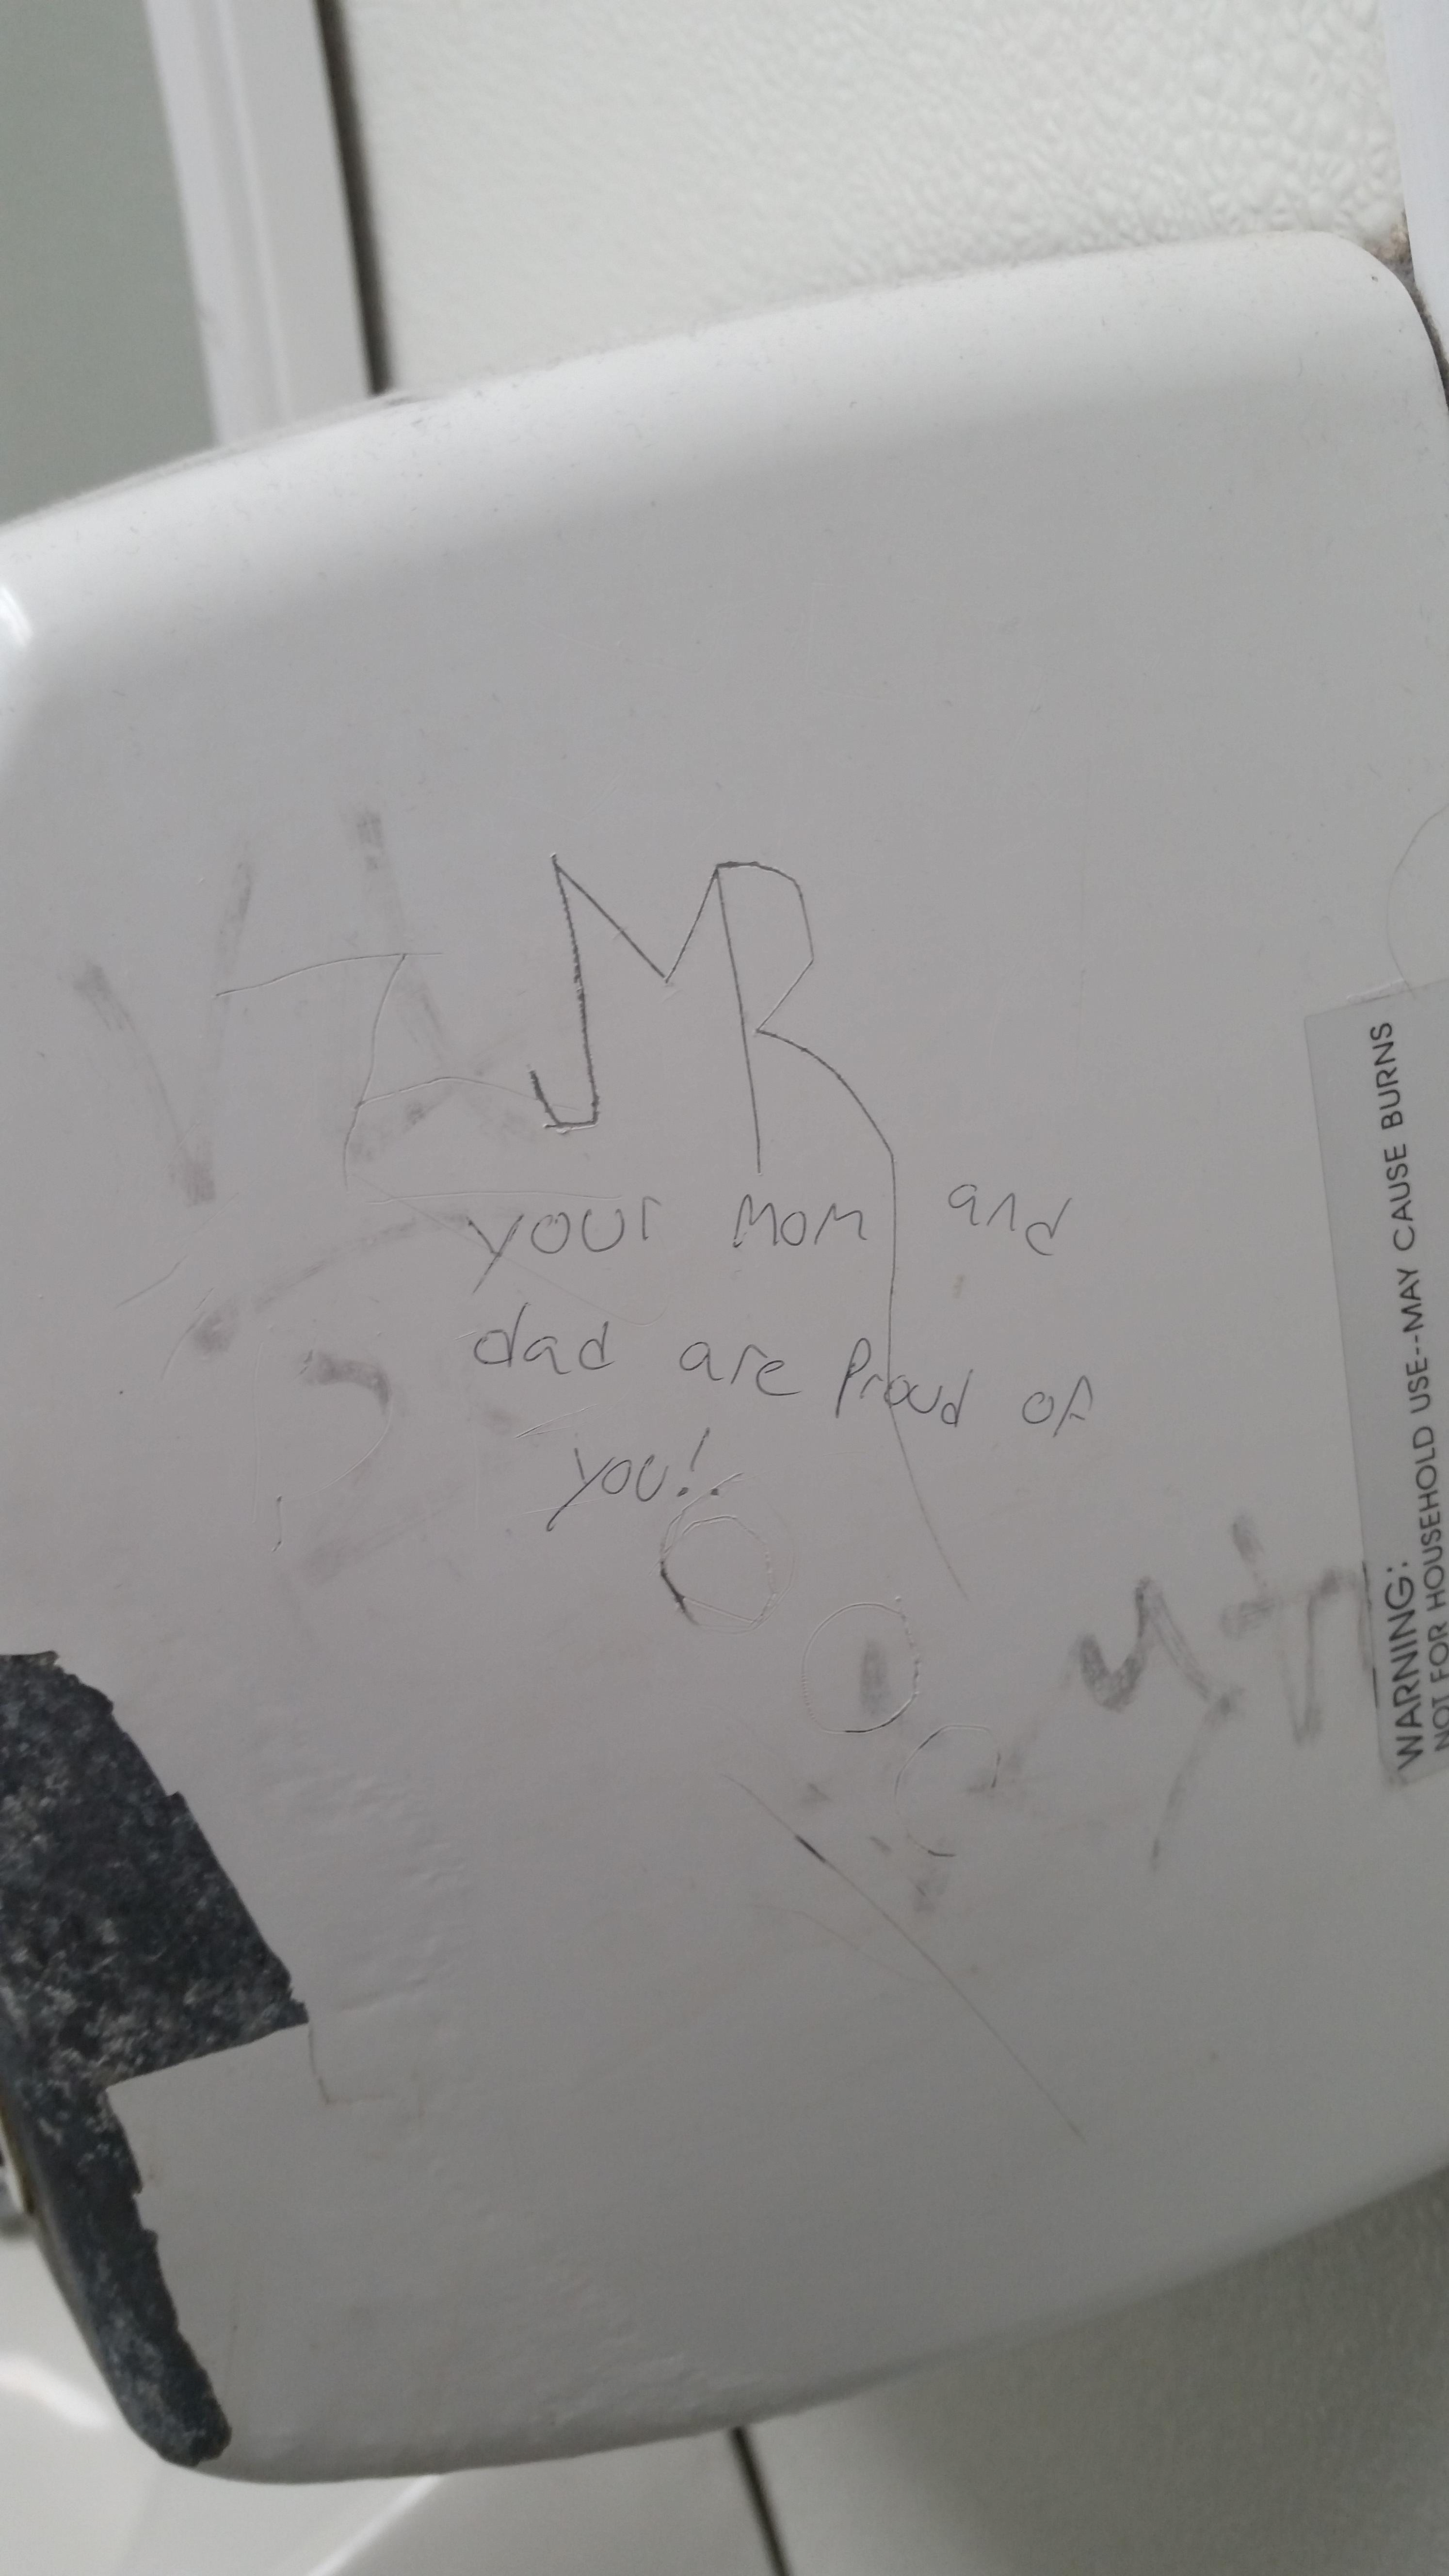 MR
your mom and
dad are Proud of
you!
WARNING:
NOT FOR HOUSEHOLD USE--MAY CAUSE BURNS